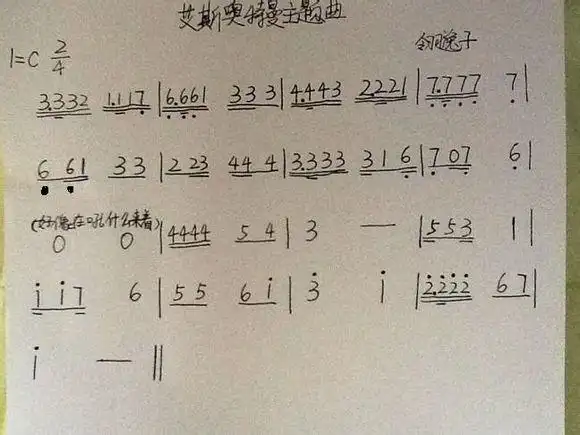 艾斯奥特曼主题曲
令羽兔子
1=C 2/4
3.332 1.117̣ | 6̣.6̣6̣1 333 | 4.443 2.221 | 7̣.7̣7̣7̣ 7̣ |
6̣ 6̣1 33 | 2 23 44 4 | 3.333 3 1 6̣ | 7̣ 07̣ 6̣ |
(好像在吼什么来着)
0 0 | 4444 5 4 | 3 — | 5 5 3 1 |
i̇ i̇ 7 6 | 5 5 6 i̇ | 3̇ i̇ | 2̇.2̇2̇2̇ 6 7 |
i̇ — ‖